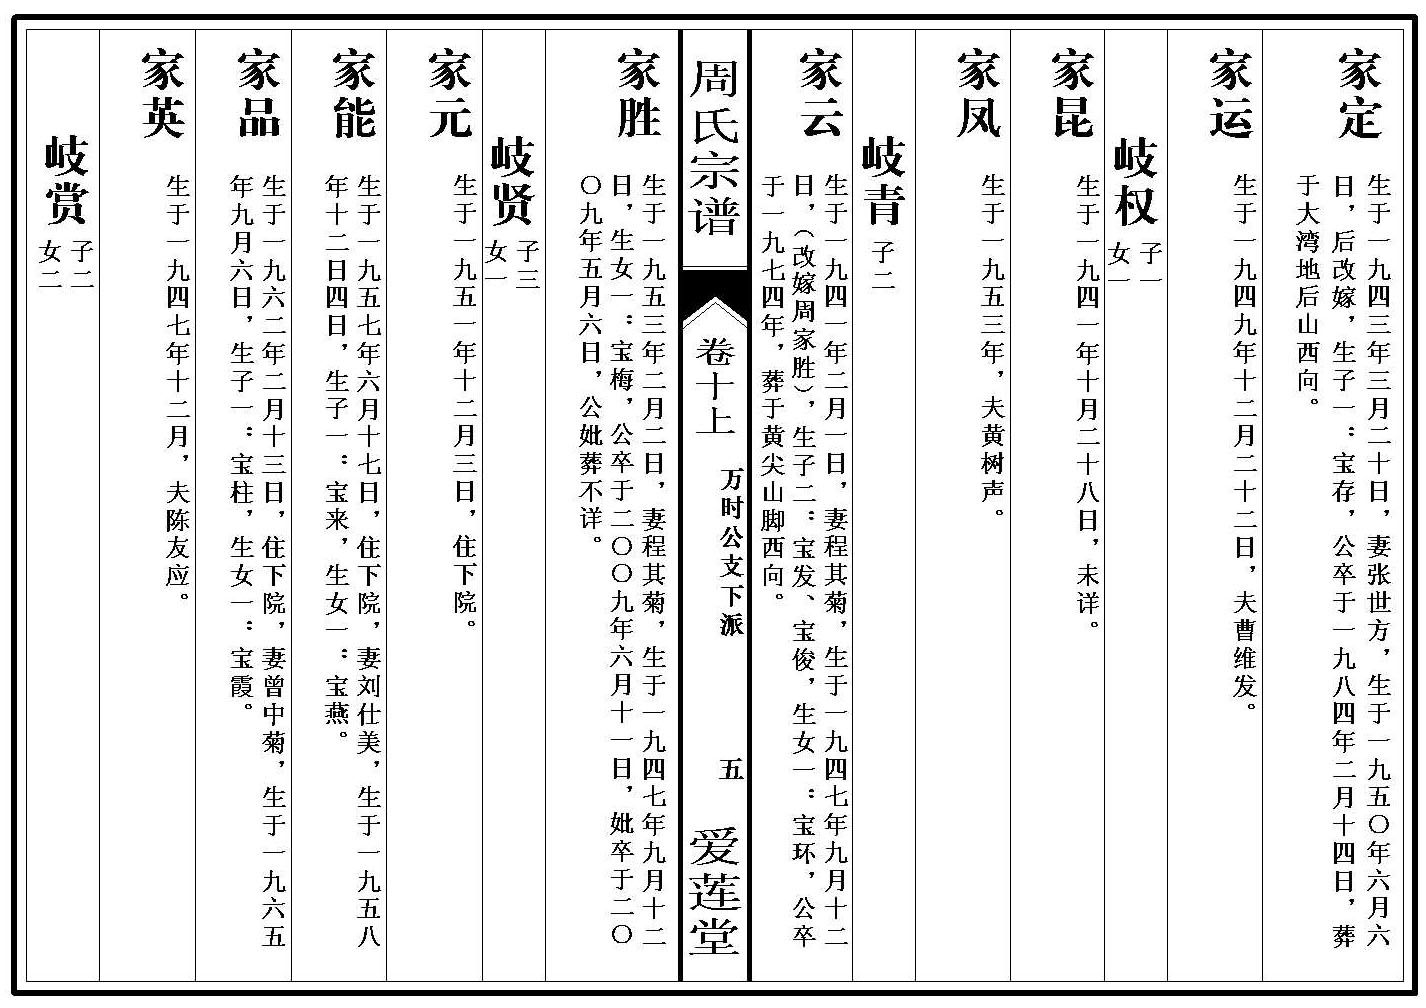 家定
生于一九四三年三月二十日，妻张世方，生于一九五〇年六月六
日，后改嫁，生子一：宝存，公卒于一九八四年二月十四日，葬
于大湾地后山西向。
家运
生于一九四九年十二月二十二日，夫曹维发。
岐权
子一
女一
家昆
生于一九四一年十月二十八日，未详。
家凤
生于一九五三年，夫黄树声。
岐青
子二
家云
生于一九四一年二月一日，妻程其菊，生于一九四七年九月十二
日，（改嫁周家胜），生子二：宝发、宝俊，生女一：宝环，公卒
于一九七四年，葬于黄尖山脚西向。
周氏宗谱
卷十上
万时公支下派
五
爱莲堂
家胜
生于一九五三年二月二日，妻程其菊，生于一九四七年九月十二
日，生女一：宝梅，公卒于二〇〇九年六月十一日，妣卒于二〇
〇九年五月六日，公妣葬不详。
岐贤
子三
女一
家元
生于一九五一年十二月三日，住下院。
家能
生于一九五七年六月十七日，住下院，妻刘仕美，生于一九五八
年十二日四日，生子一：宝来，生女一：宝燕。
家品
生于一九六二年二月十三日，住下院，妻曾中菊，生于一九六五
年九月六日，生子一：宝柱，生女一：宝霞。
家英
生于一九四七年十二月，夫陈友应。
岐赏
子二
女二